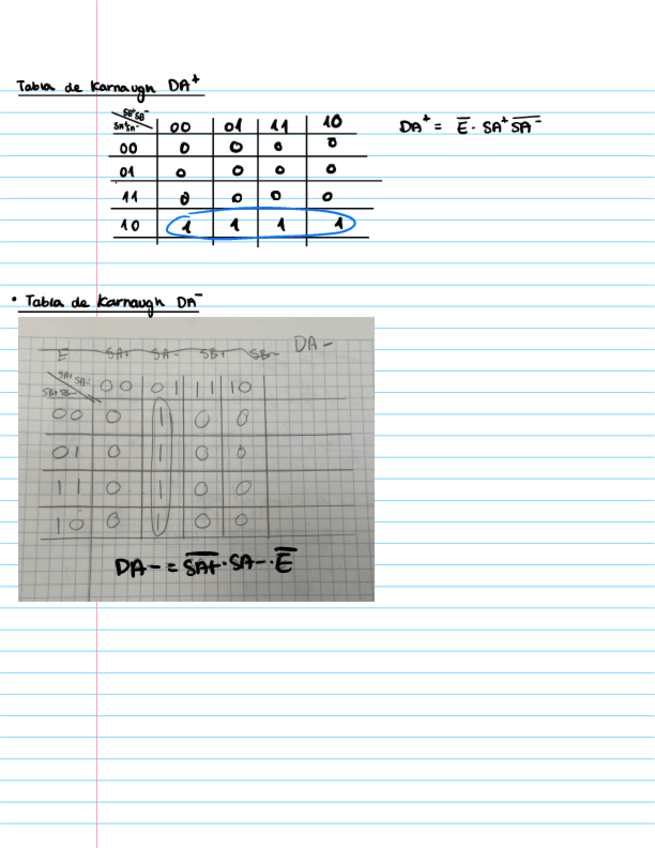 Tabla de Karnaugh DA⁺
SB⁺SB⁻
SA⁺SA⁻ 00 01 11 10
00 0 0 0 0
01 0 0 0 0
11 0 0 0 0
10 1 1 1 1
DA⁺ = E̅ · SA⁺ S̅A̅⁻
• Tabla de Karnaugh DA⁻
E SA+ SA- SB+ SB- DA-
SA+ SA-
SB+ SB- 00 01 11 10
00 0 1 0 0
01 0 1 0 0
11 0 1 0 0
10 0 1 0 0
DA- = S̅A̅+̅ · SA- · E̅